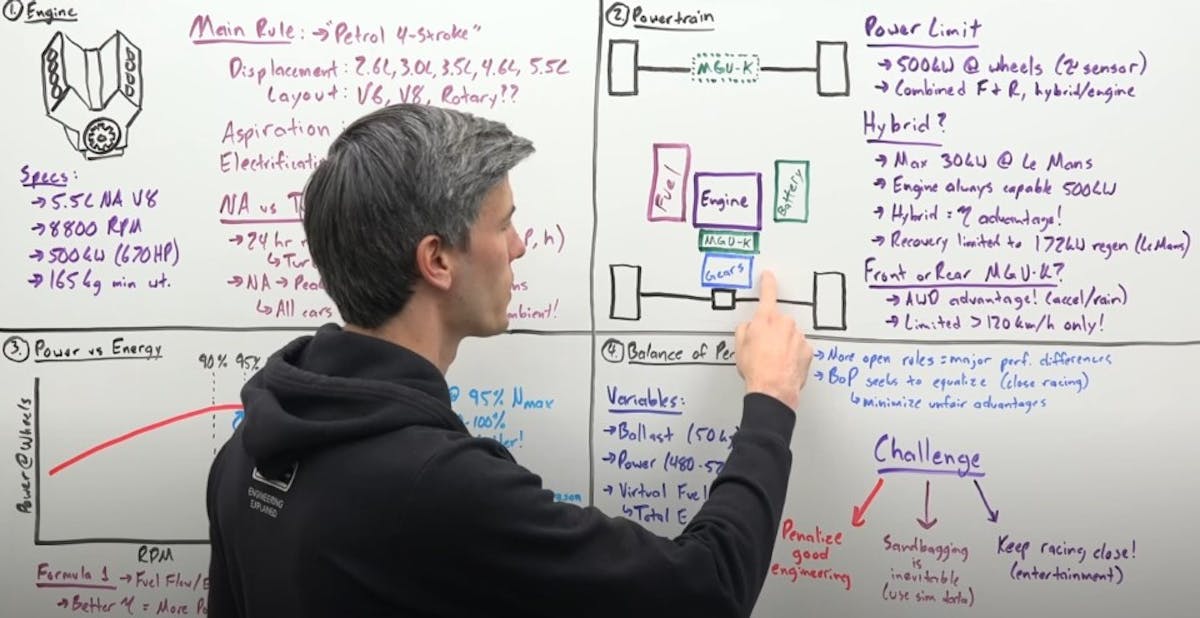 1. Engine
Main Rule: → "Petrol 4-Stroke"
Displacement: 2.6L, 3.0L, 3.5L, 4.6L, 5.5L
Layout: V6, V8, Rotary??
Aspiration
Specs:
→ 5.5L NA V8
→ 8800 RPM
→ 500kW (670HP)
→ 165kg min wt.
NA vs
→ 24 hr
→ NA →
↳ All cars
2. Powertrain
MGU-K
Fuel
Engine
Battery
MGU-K
Gears
Power Limit
→ 500kW @ wheels (2x sensor)
→ Combined F + R, hybrid/engine
Hybrid?
→ Max 30kW @ Le Mans
→ Engine always capable 500kW
→ Hybrid = η advantage!
→ Recovery limited to 172kW regen (Le Mans)
Front or Rear MGU-K?
→ AWD advantage! (accel/rain)
→ Limited >120km/h only!
3. Power vs Energy
Power@Wheels
90% 95%
RPM
@ 95% Nmax
-100%
Formula 1 → Fuel Flow/
→ Better η = More
ENGINEERING
EXPLAINED
4. Balance of
→ More open rules = major perf. differences
→ BoP seeks to equalize (close racing)
↳ minimize unfair advantages
Variables:
→ Ballast (50
→ Power (480-52
→ Virtual Fuel
↳ Total E
Challenge
Penalize
good
engineering
Sandbagging
is
inevitable
(use sim data)
Keep racing close!
(entertainment)